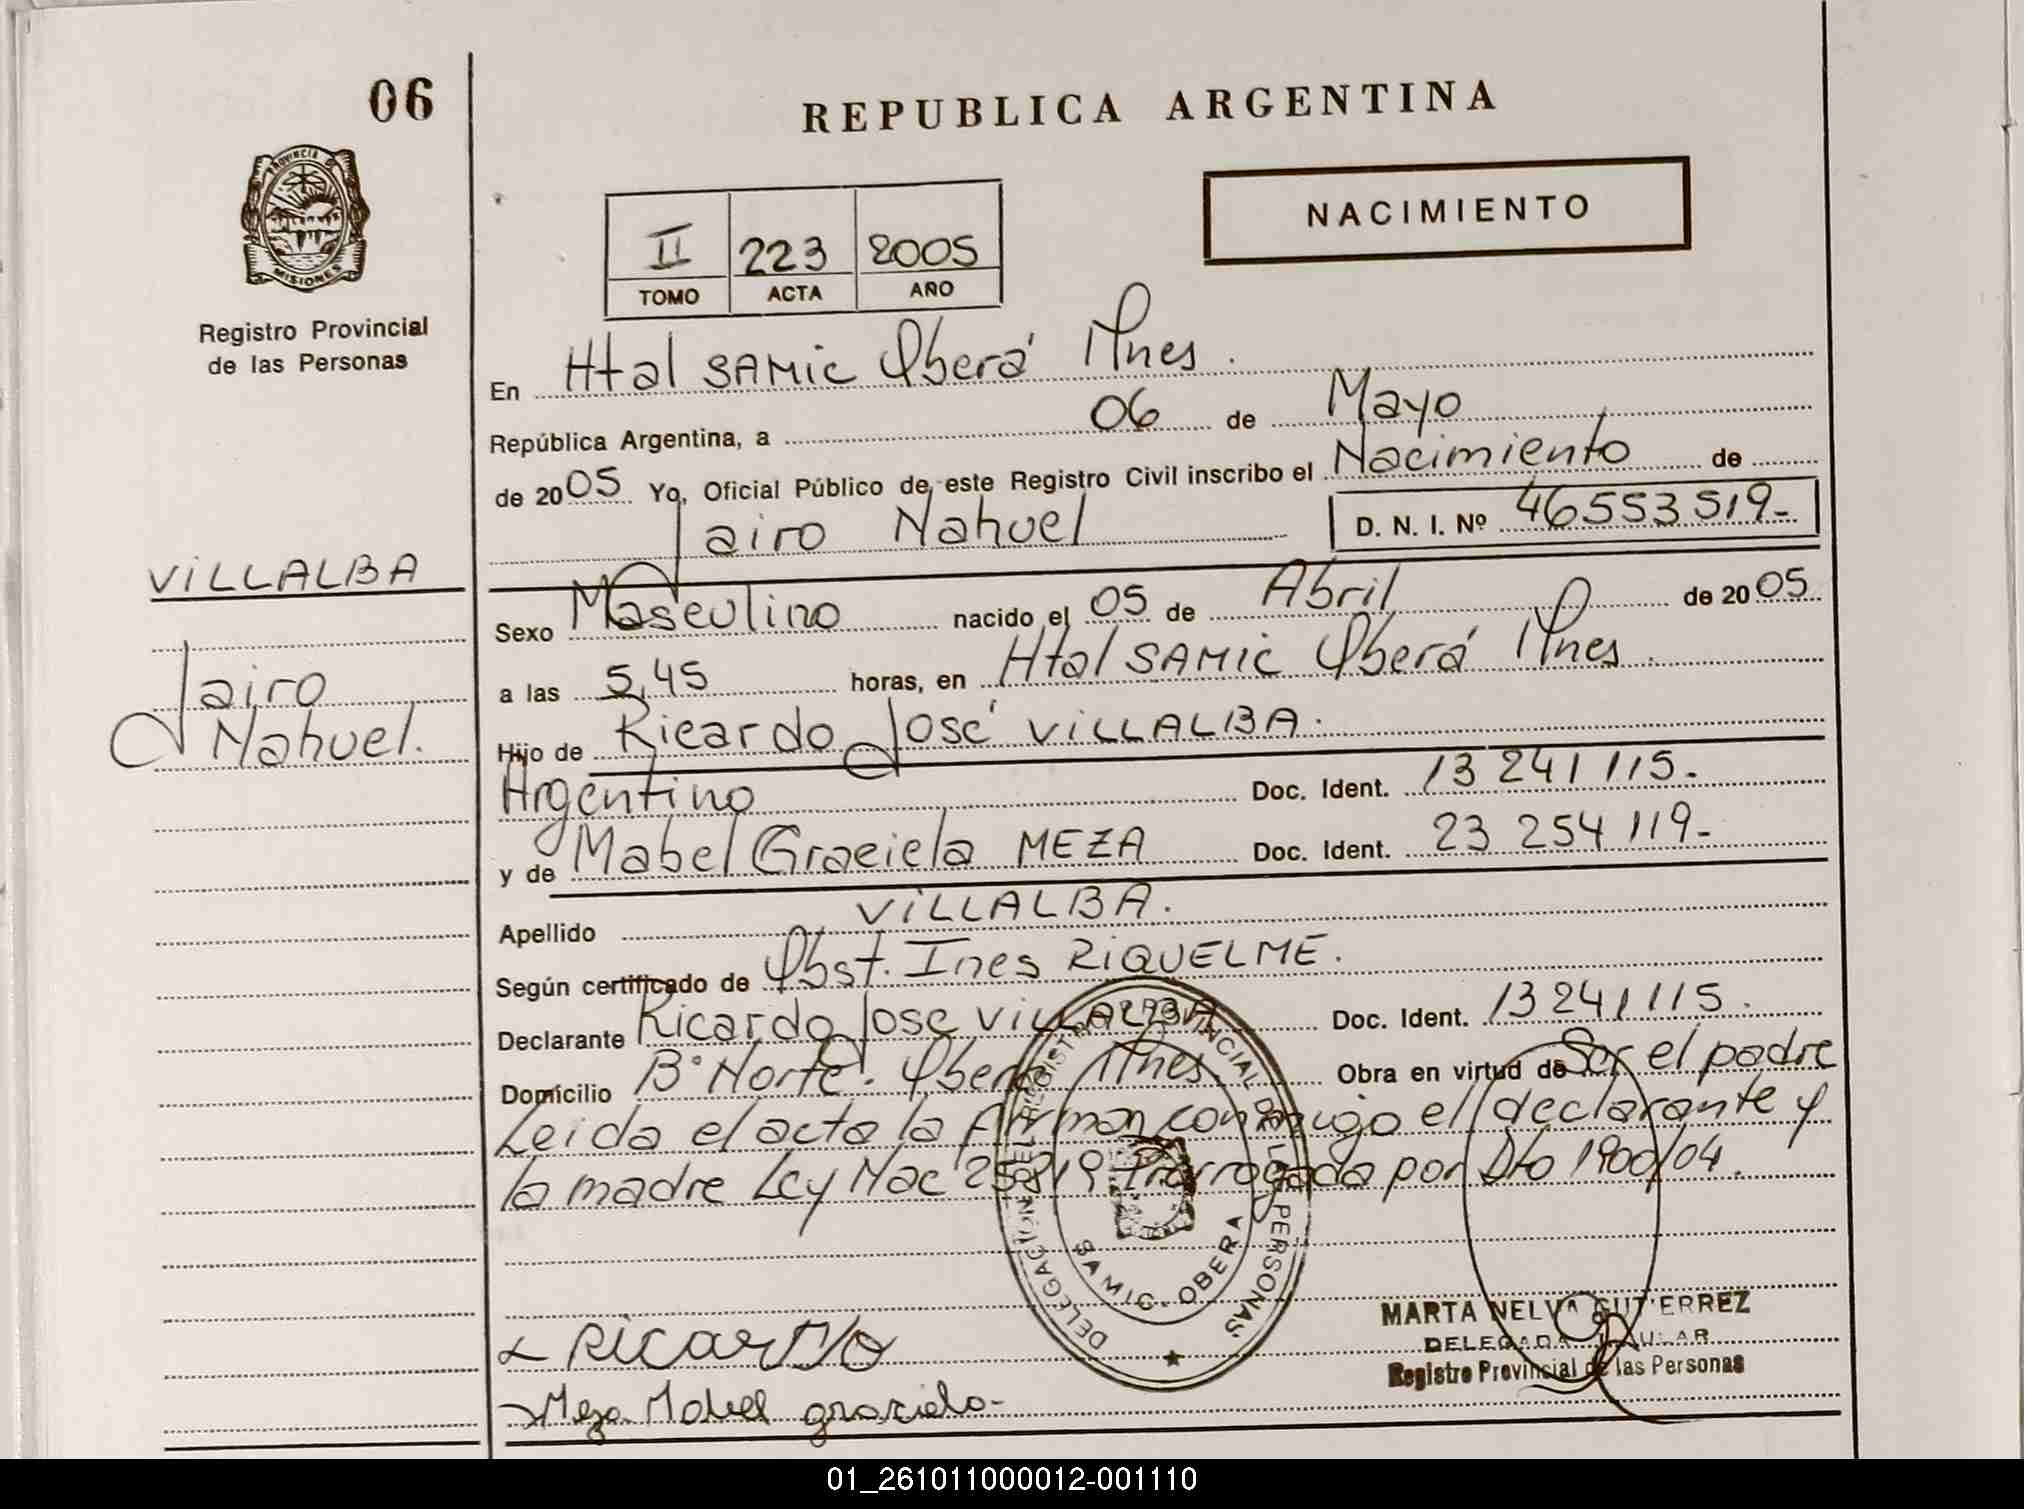 06
REPUBLICA ARGENTINA
PROVINCIA DE
MISIONES
Registro Provincial
de las Personas
NACIMIENTO
II 223 2005
TOMO ACTA AÑO
En Htal SAMic Oberá Mnes.
República Argentina, a 06 de Mayo
de 2005 Yo, Oficial Público de este Registro Civil inscribo el Nacimiento de
Jairo Nahuel D. N. I. Nº 46553519-
VILLALBA
Jairo
Nahuel.
Sexo Masculino nacido el 05 de Abril de 2005
a las 5,45 horas, en Htal SAMic Oberá Mnes.
Hijo de Ricardo José VILLALBA.
Argentino Doc. Ident. 13 241 115.
y de Mabel Graciela MEZA Doc. Ident. 23 254 119-
Apellido VILLALBA.
Según certificado de Obst. Ines RIQUELME.
Declarante Ricardo Jose VILLALBA Doc. Ident. 13 241 115.
Domicilio Bº Norte. Oberá Mnes. Obra en virtud de Ser el padre
Leida el acta la firman conmigo el declarante y
la madre Ley Nac 25819 Prorrogada por Dto 1900/04.
DELEGACION DEL REGISTRO PROVINCIAL DE LAS PERSONAS
SAMIC - OBERA
RicarDo
Meza Mabel graciela-
MARTA NELVA GUTIERREZ
DELEGADA TITULAR
Registro Provincial de las Personas
01_261011000012-001110